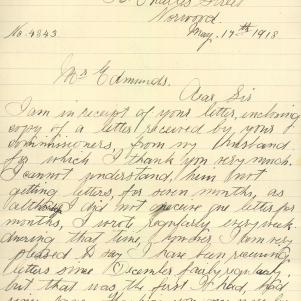 Charles Street
Norwood.
No. 4843 May, 17th 1918
Mr Edmunds.
Dear Sir
I am in receipt of your letter, inclosing
copy of a letter received by your
Commissioners, from my Husband
for which I thank you very much.
I cannot understand, him not
getting letters, for seven months, as
although I did not receive one letter for
months, I wrote regularly every week.
during that time, I am very
pleased to say I have been receiving
letters since December fairly regularly,
but that was the first I had, had